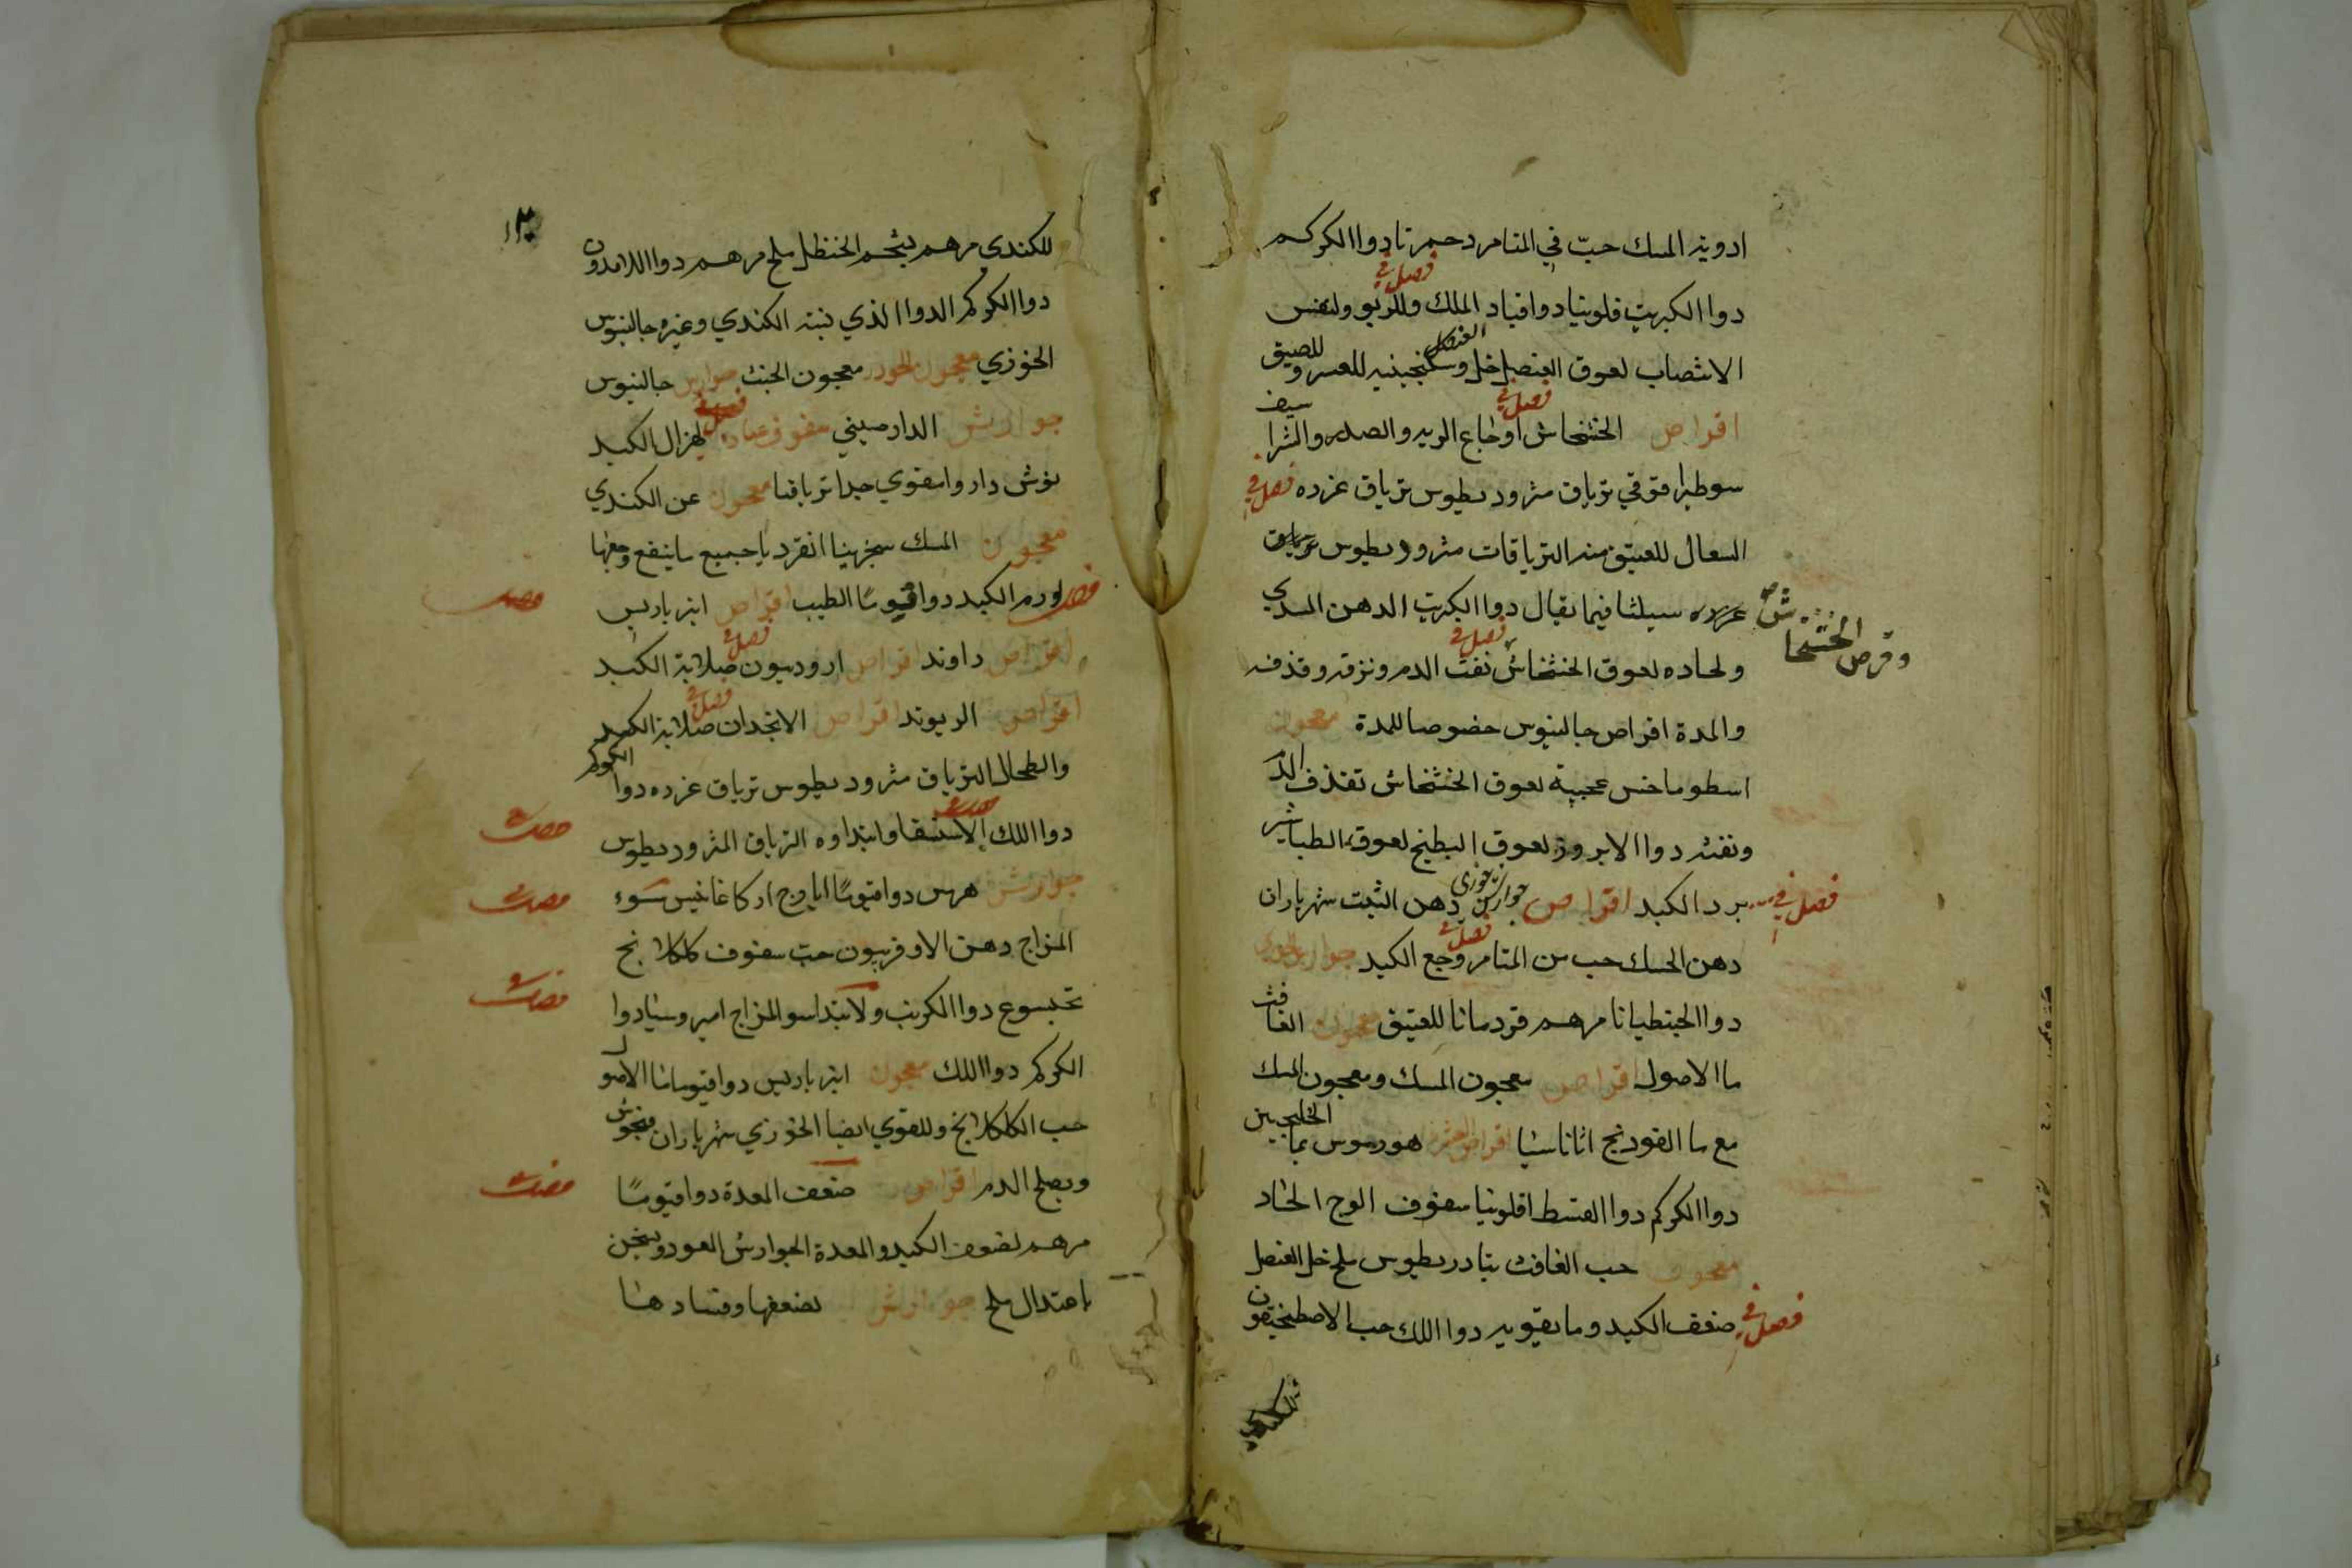 ادوية المسك حبّ في المتامر دحمرتا دوا الكركم
فصل في
دوا الكبريت فلونيا دوا قباد الملك وللربو ولنفس
الانتصاب لعوق العنصل خل العنصل وسكنجبينه للعسر وللضيق
اقراص الخشخاش فصل في اوجاع الريه والصدر والشرا سيف
سوطيرا فوقي ترياق مثروديطوس ترياق عزره فصل في
السعال للعتيق منه الترياقات مثروديطوس ترياق
عزره سيلثا فيما يقال دوا الكبريت الدهن
وقرص الخشخاش
ولحاده لعوق الخشخاش فصل في نفث الدم ونزفه وقذفه
والمدة اقراص جالينوس خصوصا للمدة معجون
اسطوماخس عجيبة لعوق الخشخاش تقذف الدم
ونفثه دوا الابروز لعوق البطيخ لعوق الطباشير
فصل في برد الكبد اقراص جوارشن خوزي دهن الشبت شهرياران
دهن الحسك حب من المتامر فصل في وجع الكبد جوارش
دوا الجنطيانا مرهم قردمانا للعتيق معجون الغافث
ما الاصول اقراص معجون المسك ومعجون المسك
مع ما الفودنج اثاناسيا اقراص هوردسوس بما الخلنجبين
دوا الكركم دوا القسط افلونيا سفوف الوج الحاد
معجون حب الغافث تيادريطوس ملح خل العنصل
فصل في ضعف الكبد وما يقويه دوا اللك حب الاصطمخيقون
للكندي
١٣
للكندي مرهم بشحم الحنظل ملح مرهم دوا
دوا الكركم الدوا الذي نسبه الكندي وغيره جالينوس
الخوزي معجون معجون الخبث جوارش جالينوس
جوارش الدارصيني سفوف عباد فصل في لهزال الكبد
نوش دارو امقوي جدا ترياقنا معجون عن الكندي
معجون المسك سجزينا انقرديا جميع ما ينفع وجعها
فصل لورم الكبد دوا قيوما الطيب اقراص انبرباريس
اقراص راوند اقراص ارودسيون فصل في صلابة الكبد
اقراص الريوند اقراص الانجدان فصل في صلابة الكبد
والطحال الترياق مثروديطوس ترياق عزره دوا الكركم
دوا اللك فصل في الاستسقا وابتداوه الترياق المثروديطوس
جوارش هرمس دوا قيوما ايارج اركاغانيس سوء
المزاج دهن الاوفربيون حب سفوف كلكلانج
دوا الكرنب ولابتدا سو المزاج اميروسيا دوا
الكركم دوا اللك معجون انبرباريس دوا قيوما ما الاصول
حب الكلكلانج وللقوي ايضا الخوزي شهرياران فنجنوش
ويصلح الدم اقراص ضعف المعدة دوا قيوما
مرهم لضعف الكبد والمعدة الجوارش العود ويسخن
باعتدال ملح جوارش لضعفها وفسادها